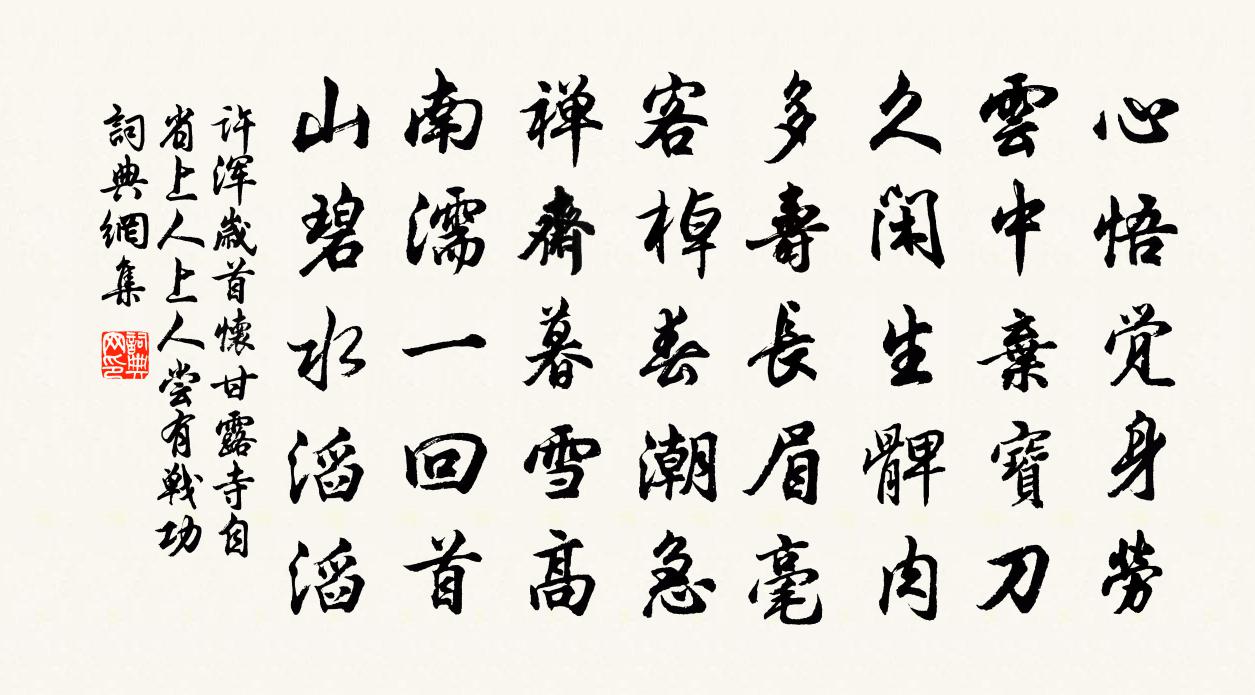 心悟覚身勞
雲中棄寶刀
久閑生髀肉
多壽長眉毫
客棹春潮急
禅齋暮雪高
南濡一回首
山碧水滔滔
许浑歲首懷甘露寺自
省上人上人嘗有戦功
詞典網集